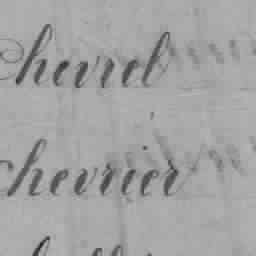 Chevrel
Chevrier